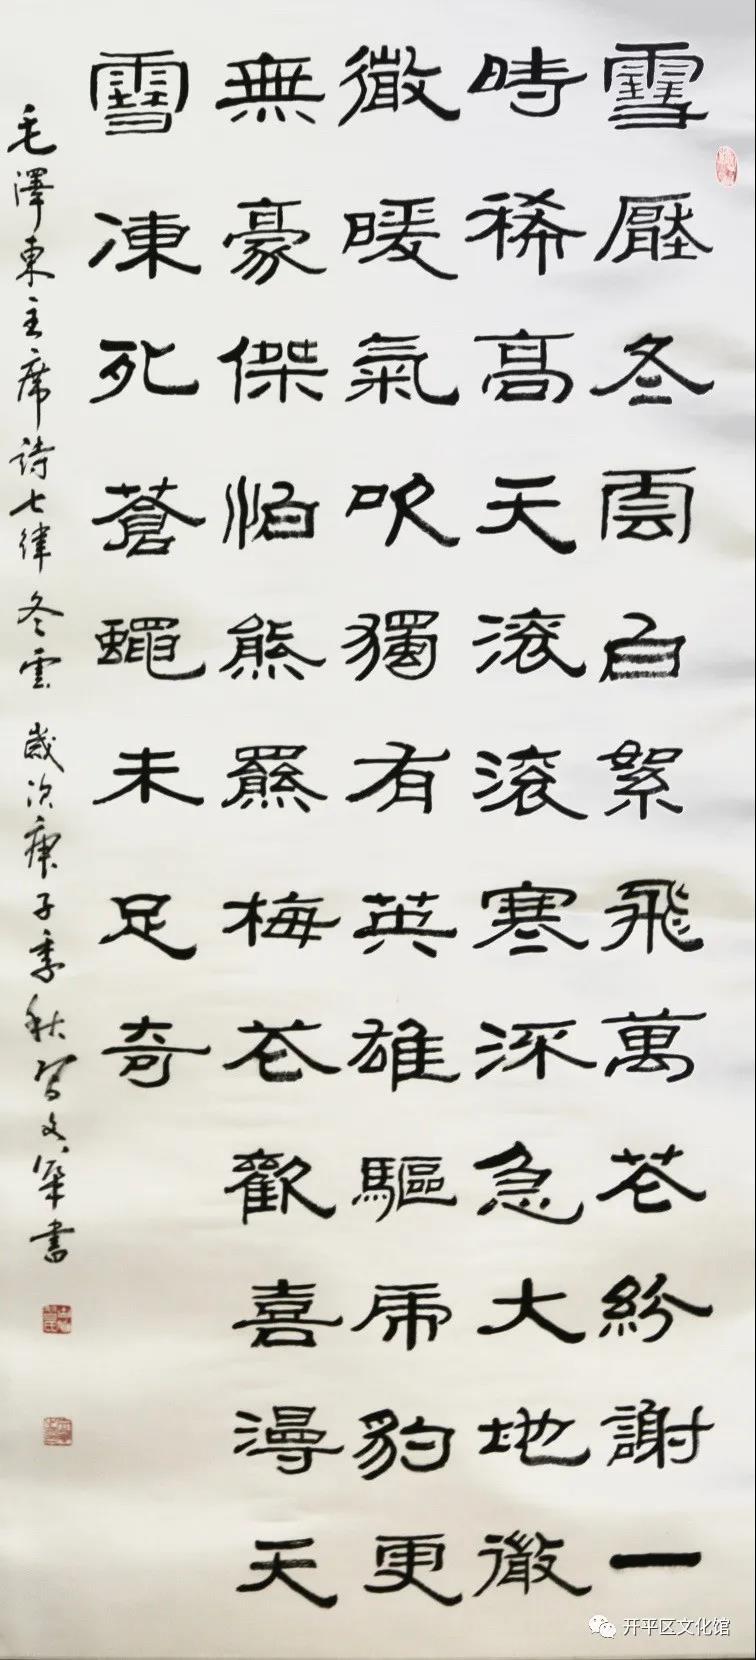 雪壓冬雲白絮飛萬花紛謝一
時稀高天滾滾寒深急大地微
微暖氣吹獨有英雄驅虎豹更
無豪傑怕熊羆梅花歡喜漫天
雪凍死蒼蠅未足奇
毛澤東主席詩七律冬雲 歲次庚子季秋 文 書
开平区文化馆